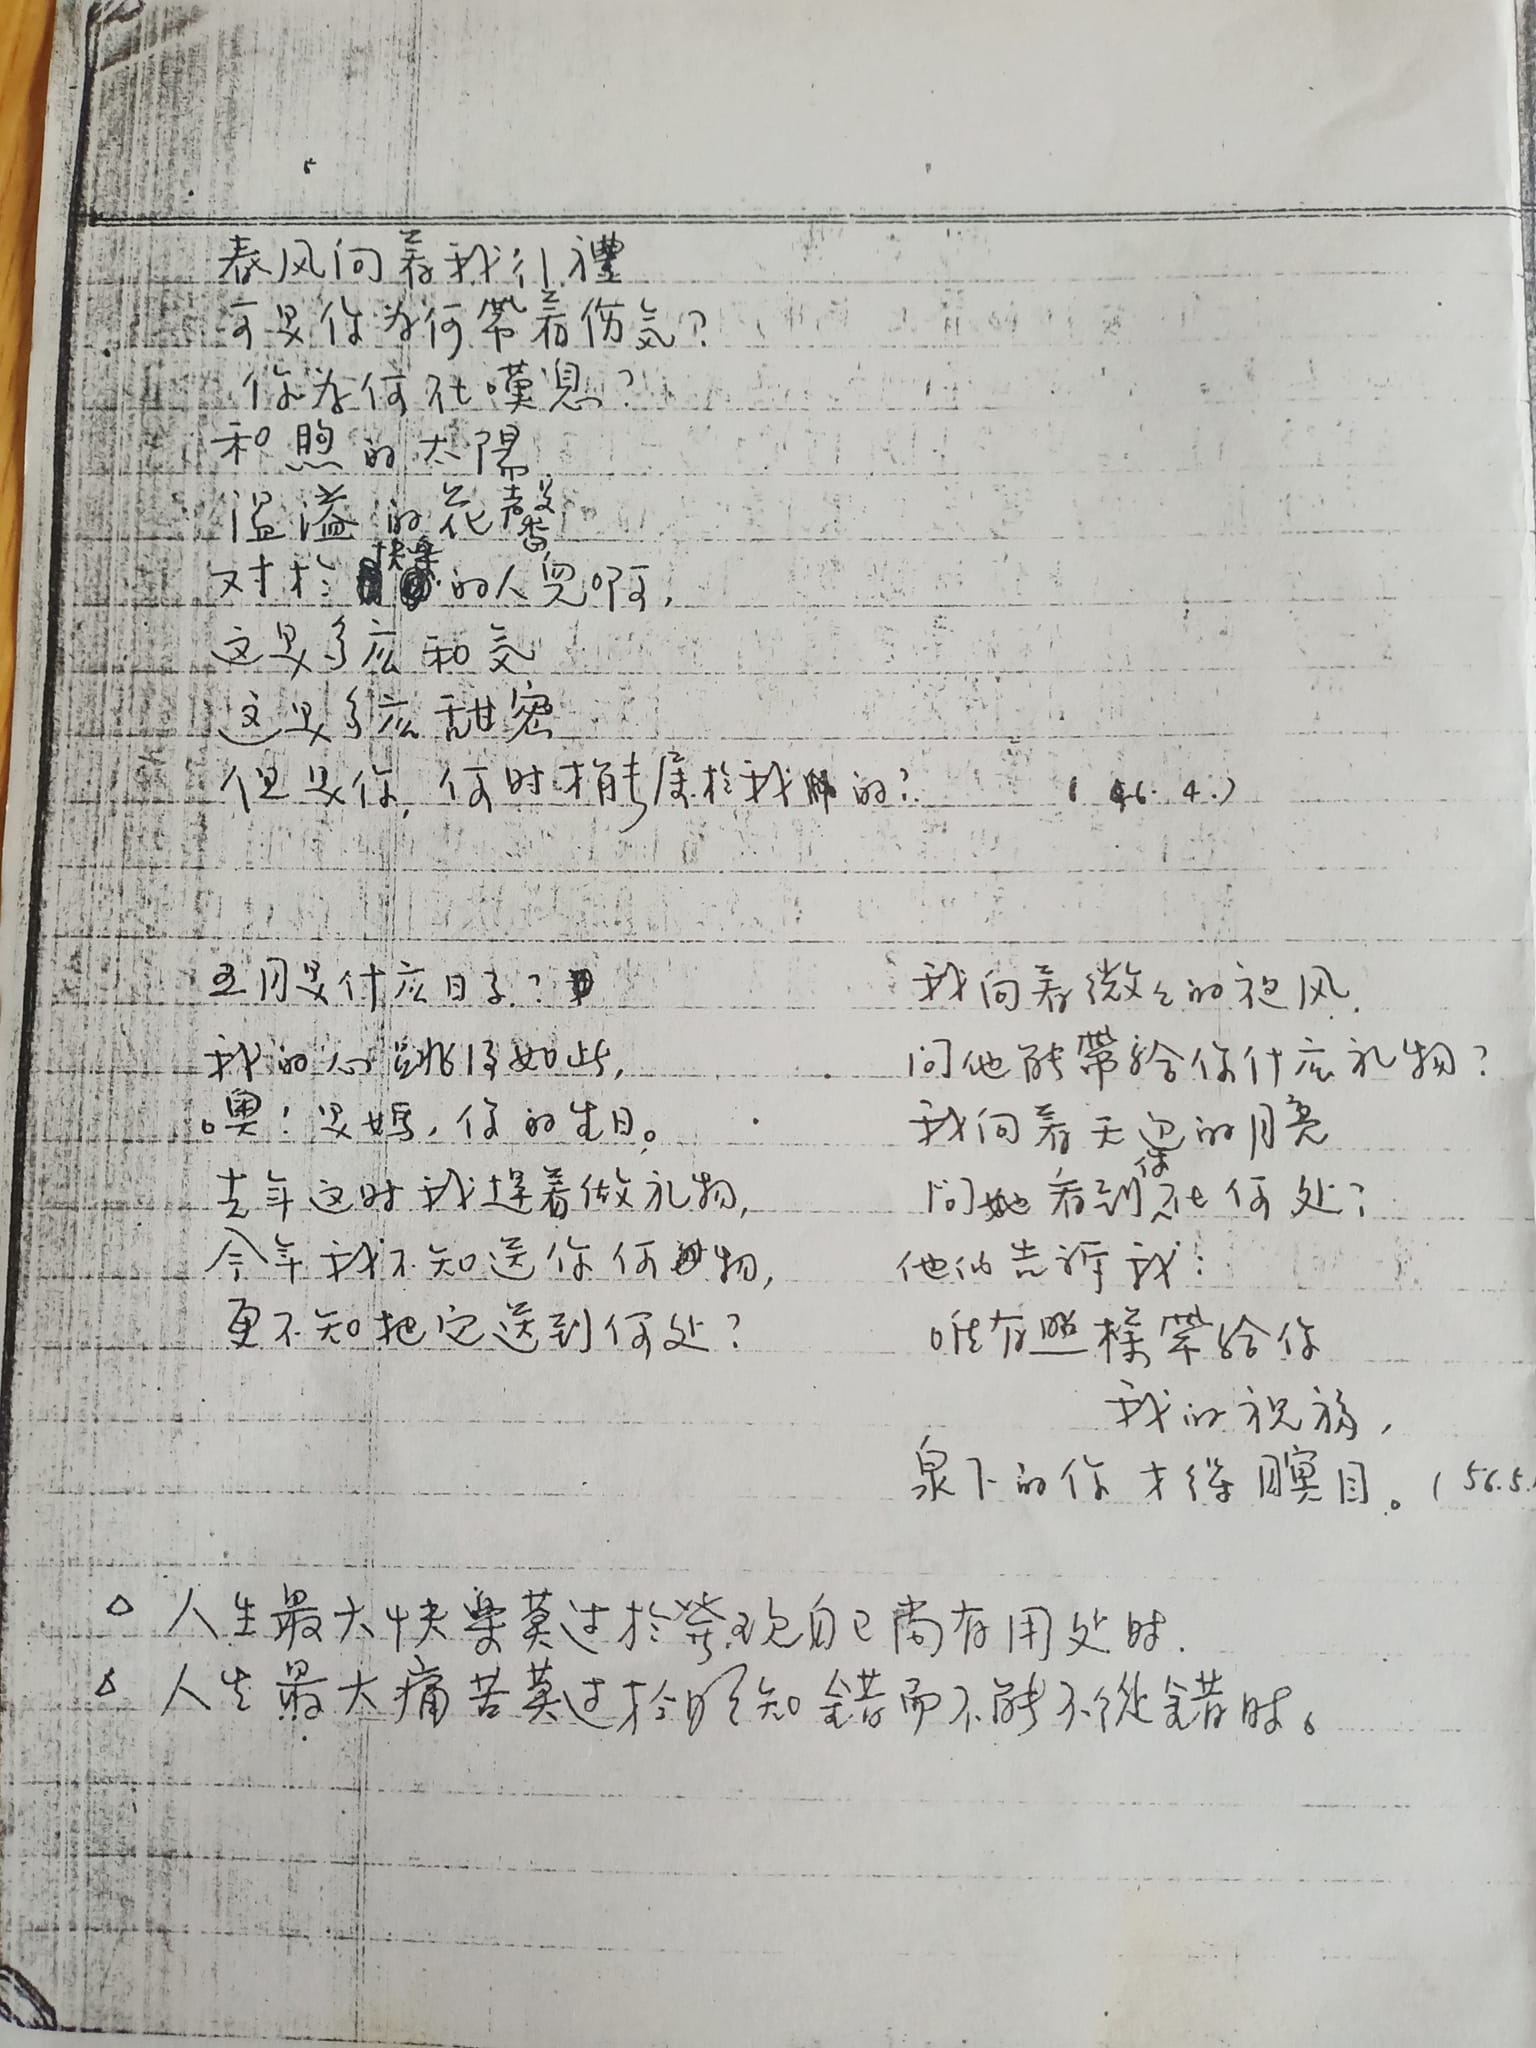 春风向着我行禮
可是你为何帶着伤気?
你为何在嘆息?
和煦的太陽
溢溢的花馨
对於快樂的人兒啊,
这是多広和気
这是多広甜密
但是你,何时才能属於我的?
(46.4.)
五月是什広日子?
我的心跳得如此,
噢!是媽,你的生日。
去年这时我趕着做礼物,
今年我不知送你何物,
更不知把它送到何处?
我向着微々的夜风,
问他能帶給你什広礼物?
我向着天边的月亮
问她看到你在何处?
他们告訴我:
唯有照樣帶給你
我的祝福,
泉下的你才得瞑目。(56.5.
△ 人生最大快樂莫过於發现自己尚有用处时.
△ 人生最大痛苦莫过於明知錯而不能不從錯时。